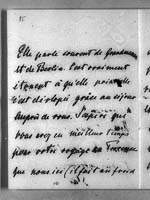 15
Elle parle souvent de
et de Bertie. C'est vraiment
étonnant à quel point elle
s'est développée grâce au séjour
auprès de vous. J'espère que
vous avez eu meilleur temps
pour votre voyage en
que nous ici (il fait au froid